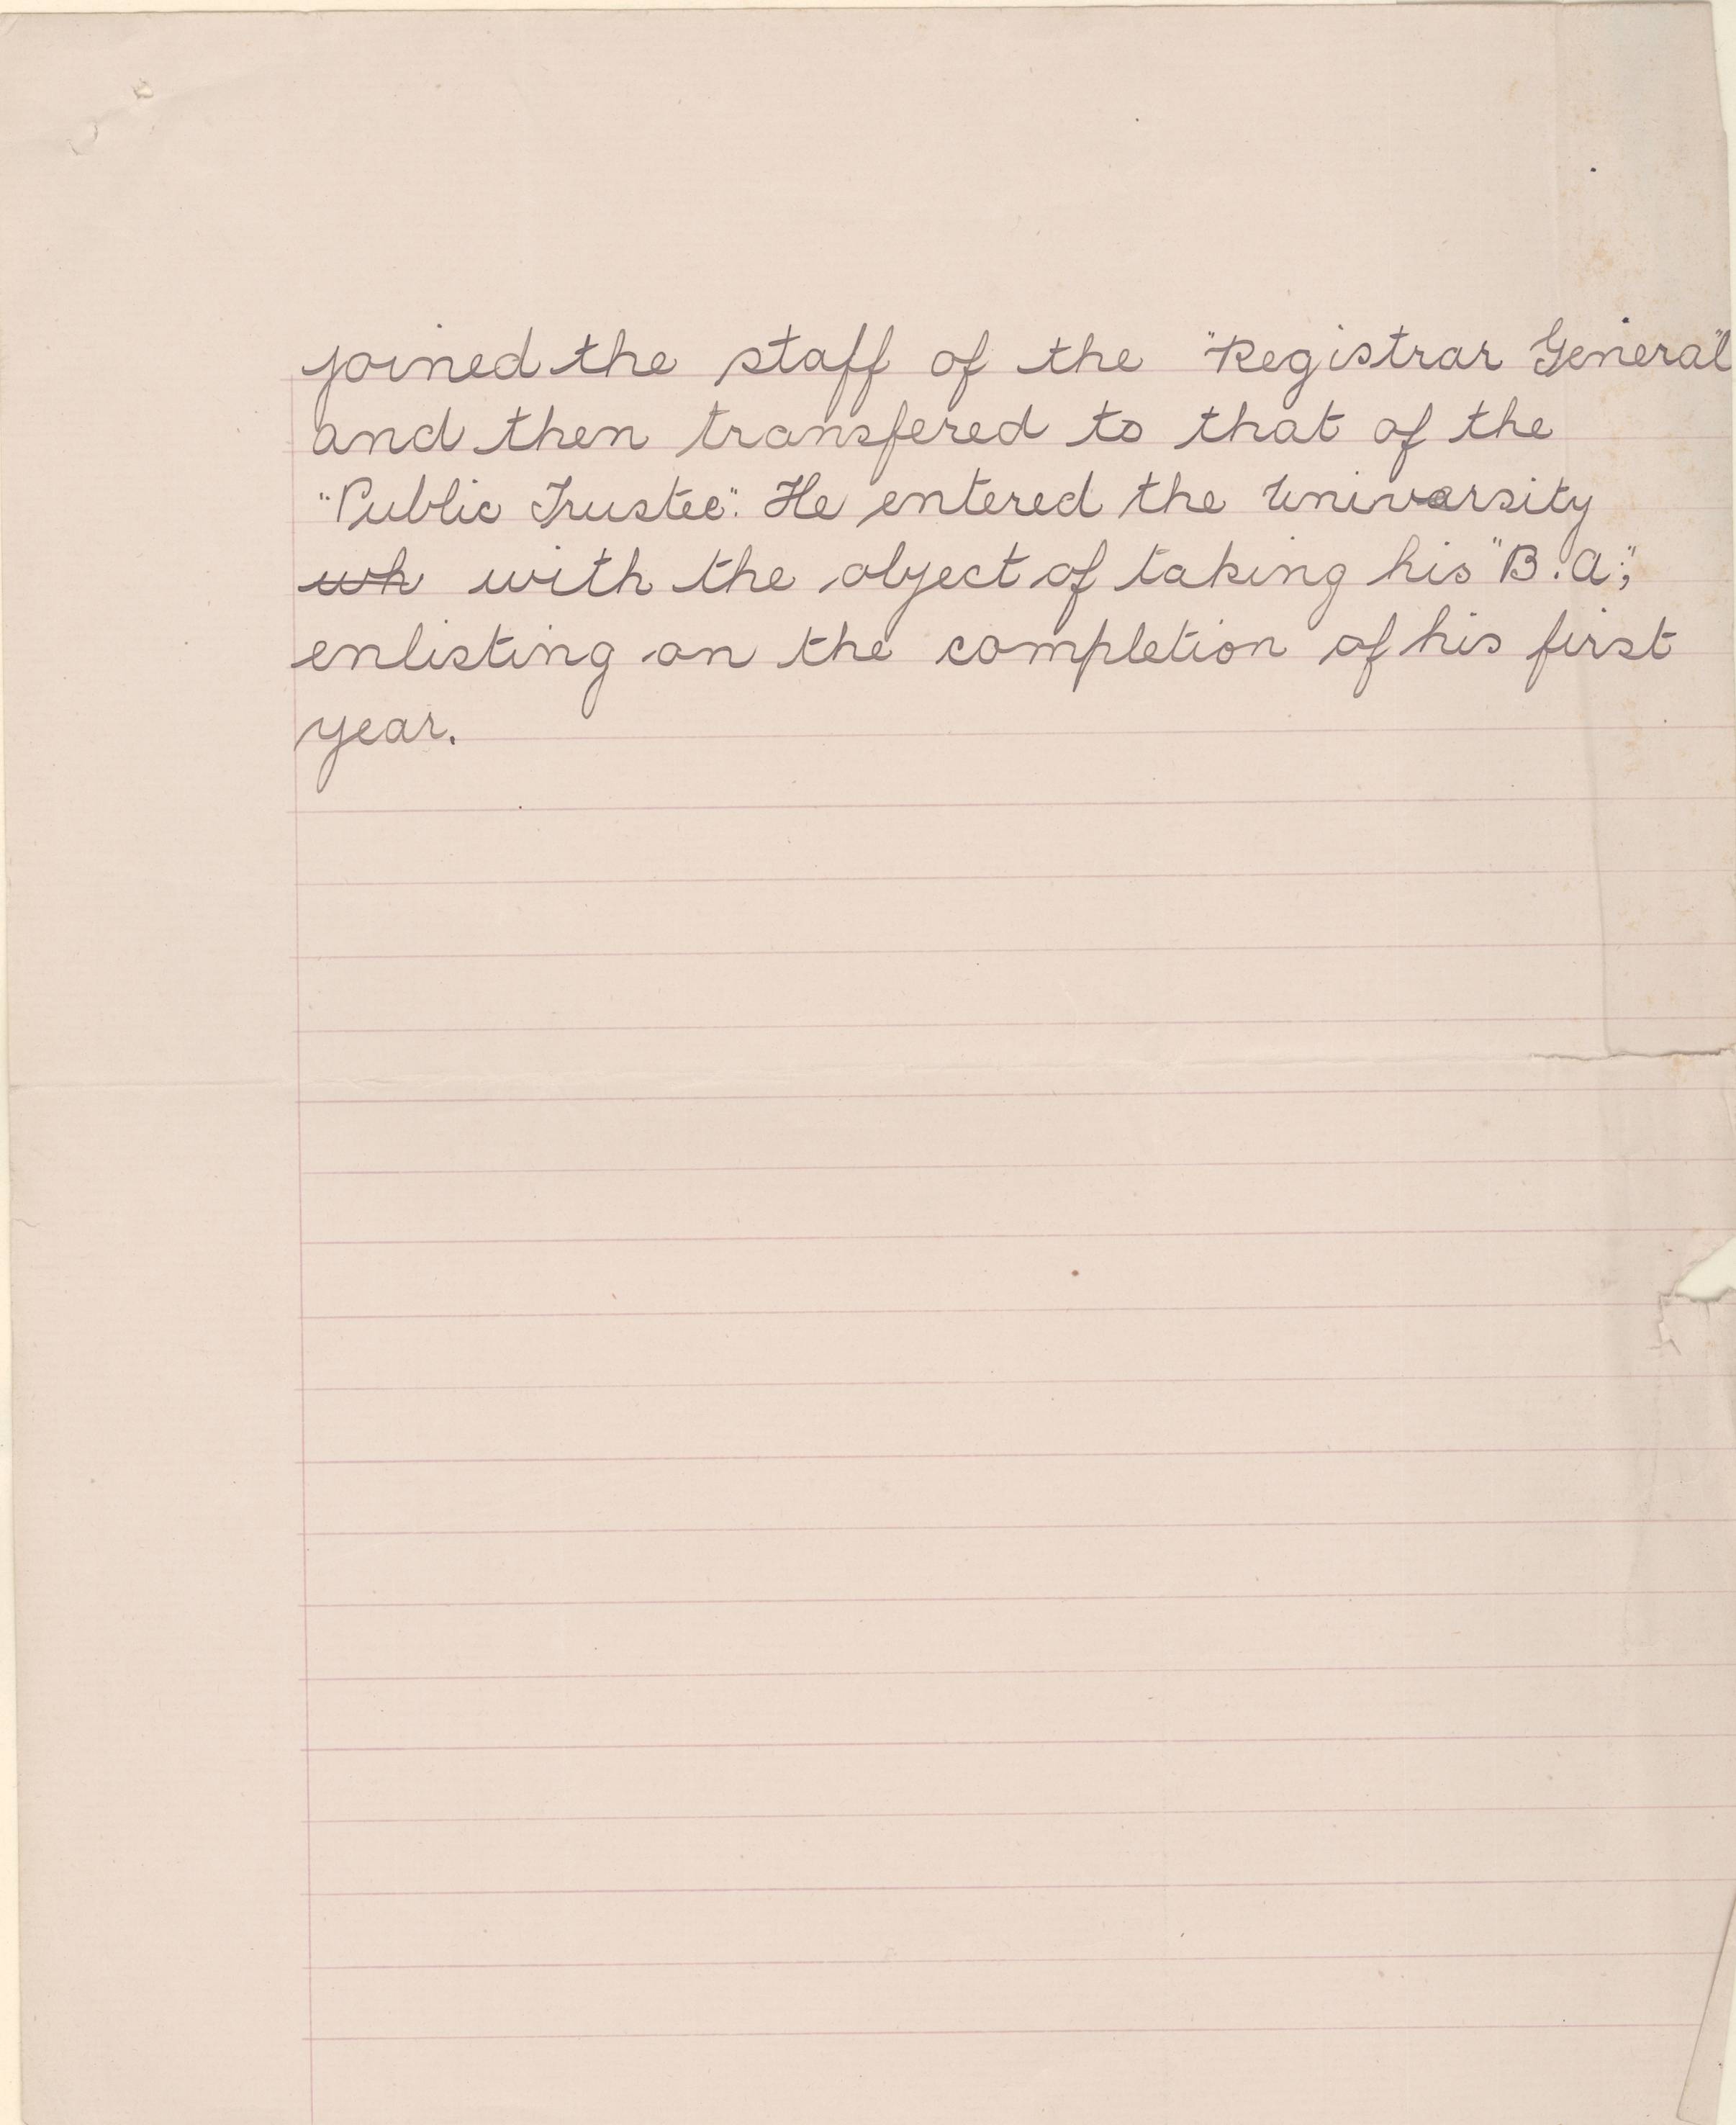 joined the staff of the "Registrar General"
and then transfered to that of the
"Public Trustee". He entered the University
wh with the object of taking his "B.A.";
enlisting on the completion of his first
year.